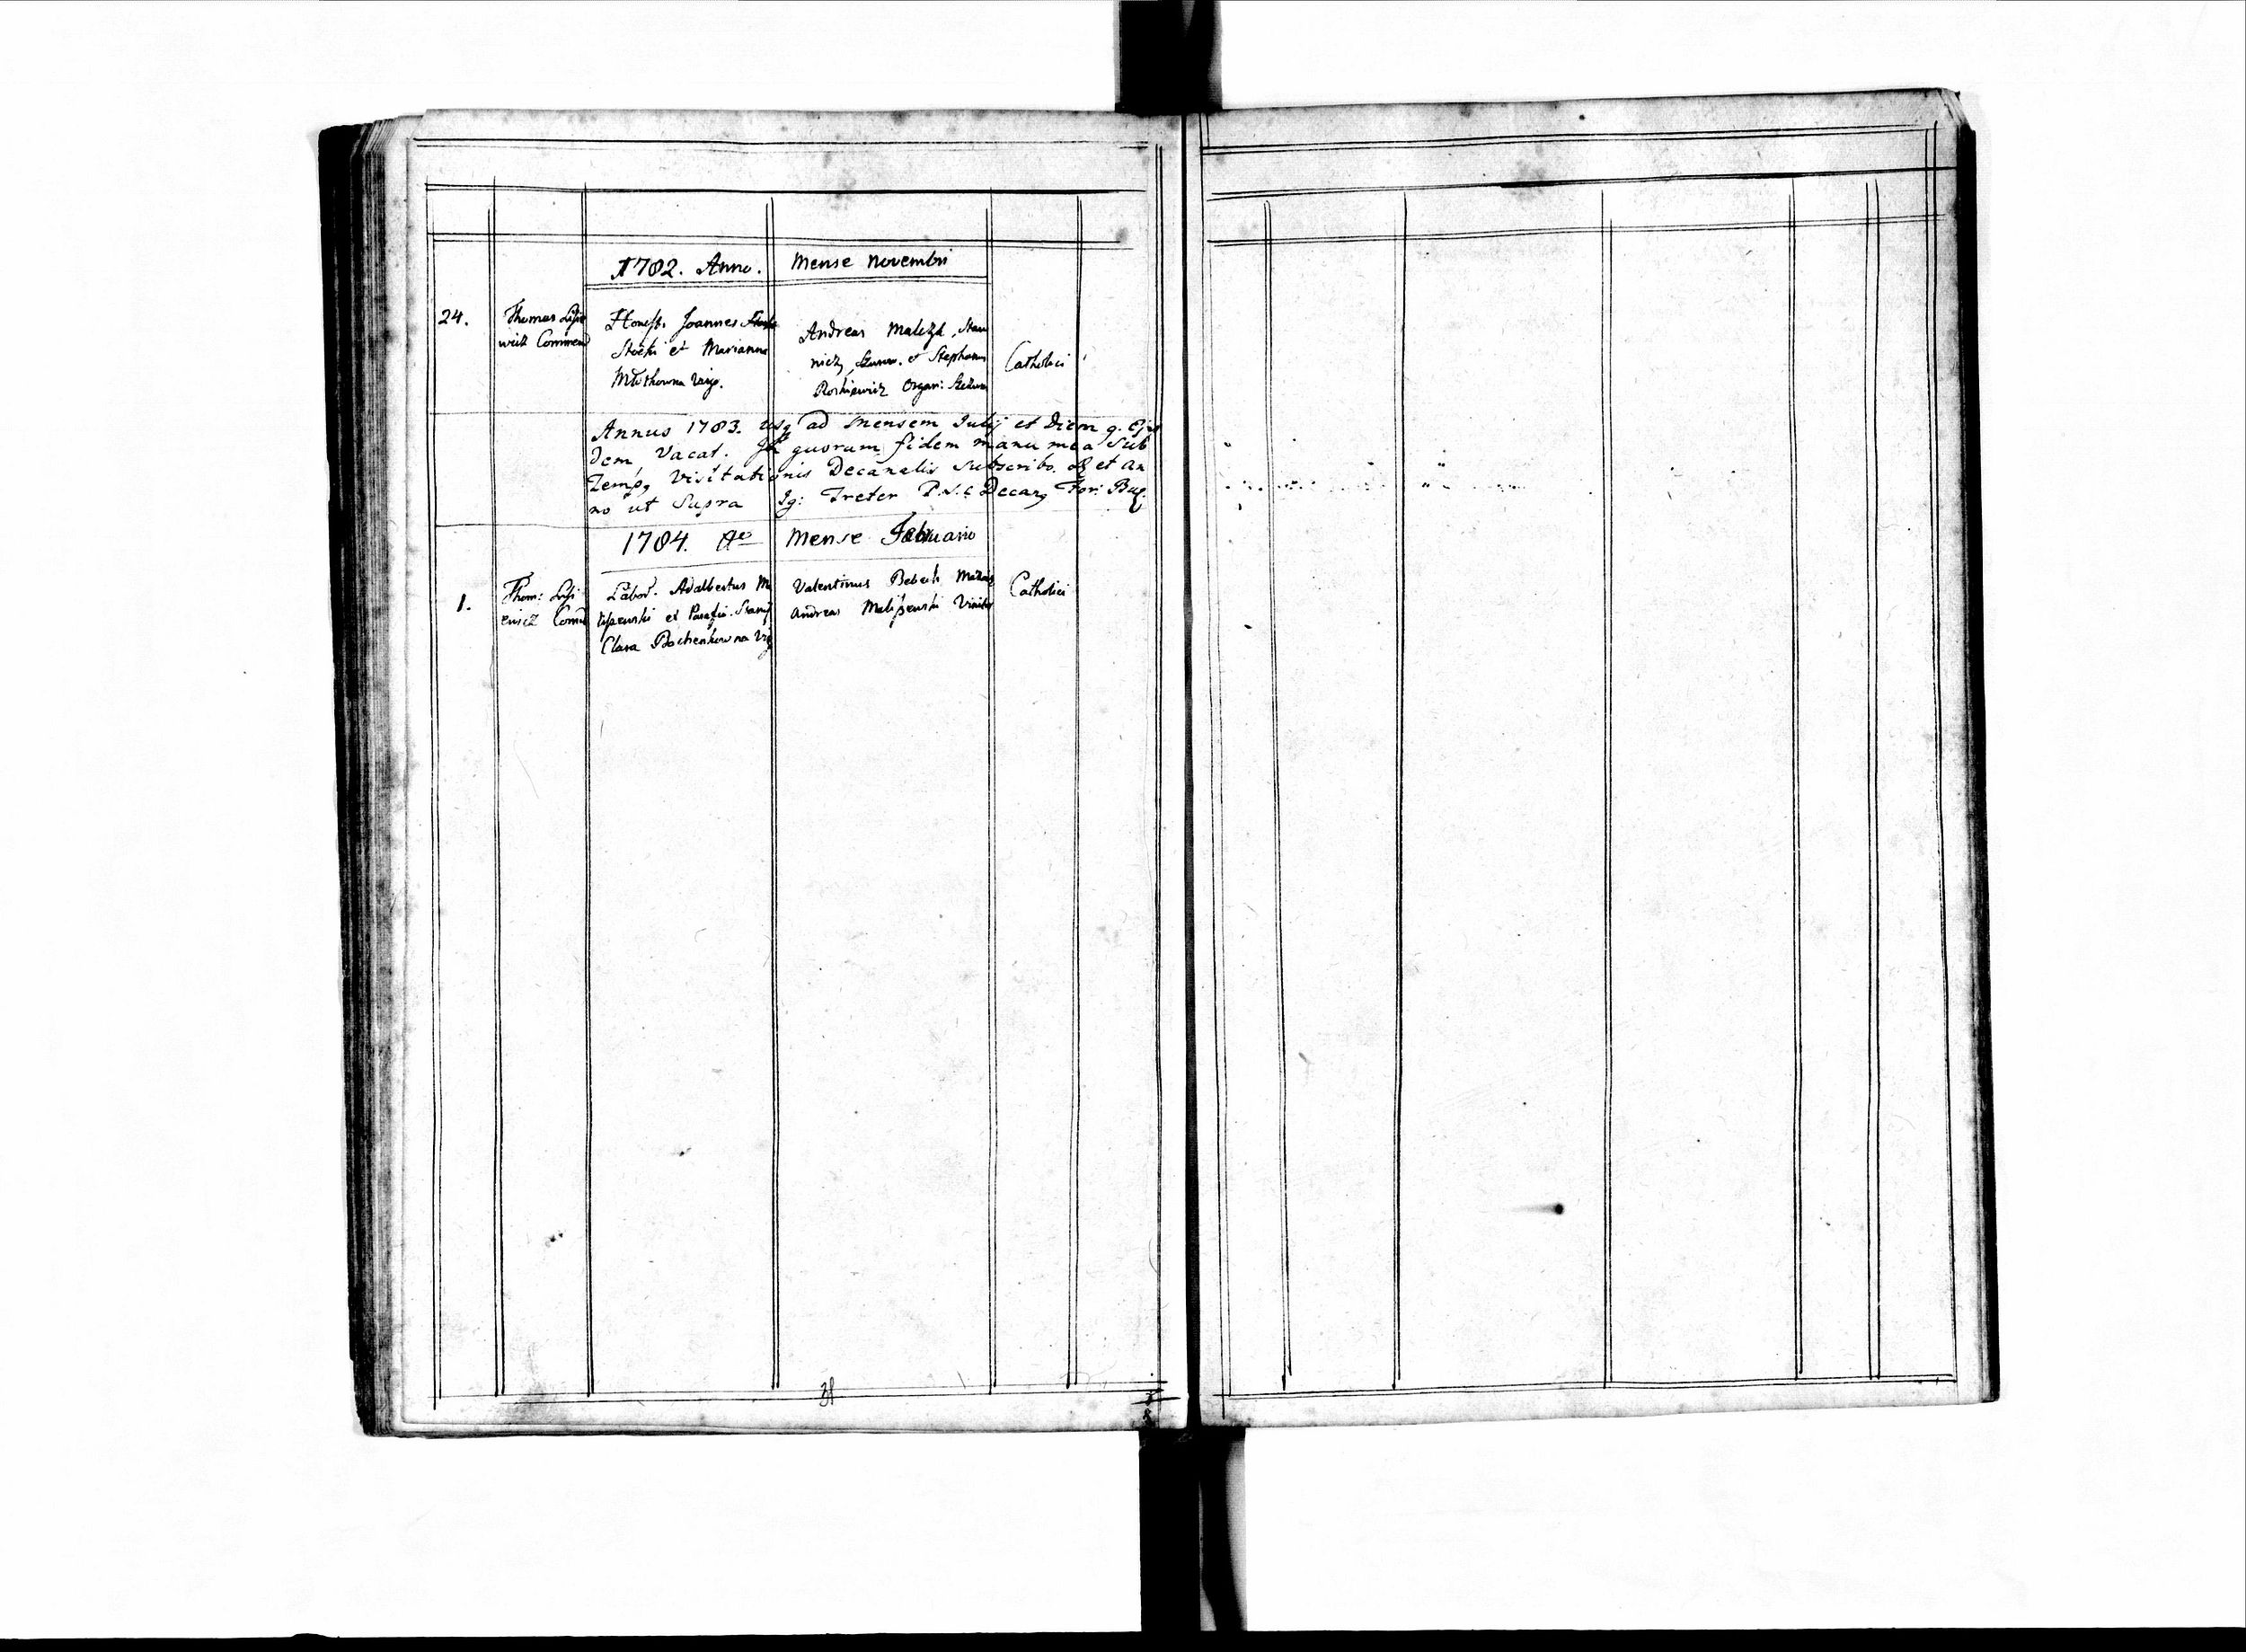 1782. Anno. Mense Novembri
24.
Thomas Lisie
wicz Commend
Honest. Joannes
Stocki et Marianna
Virg.
Andreas Malczk,
nicz, et Stephanus
Roskiewicz Organ:
Catholici
Annus 1783. usq ad Mensem Julij et Diem 9. Ejus
dem Vacat. In quorum fidem manu mea Sub
Temp, Visitationis Decanalis Subscribo. et An
no ut Supra Ig: Treter Decan, For:
1784. Ao Mense Februario
1.
Thom: Lisi
ewicz Comd
Labor. Adalbertus Ma
liszewski et
Clara Bochenkowna Virg
Valentinus Bebech
Andreas Maliszewski
Catholici